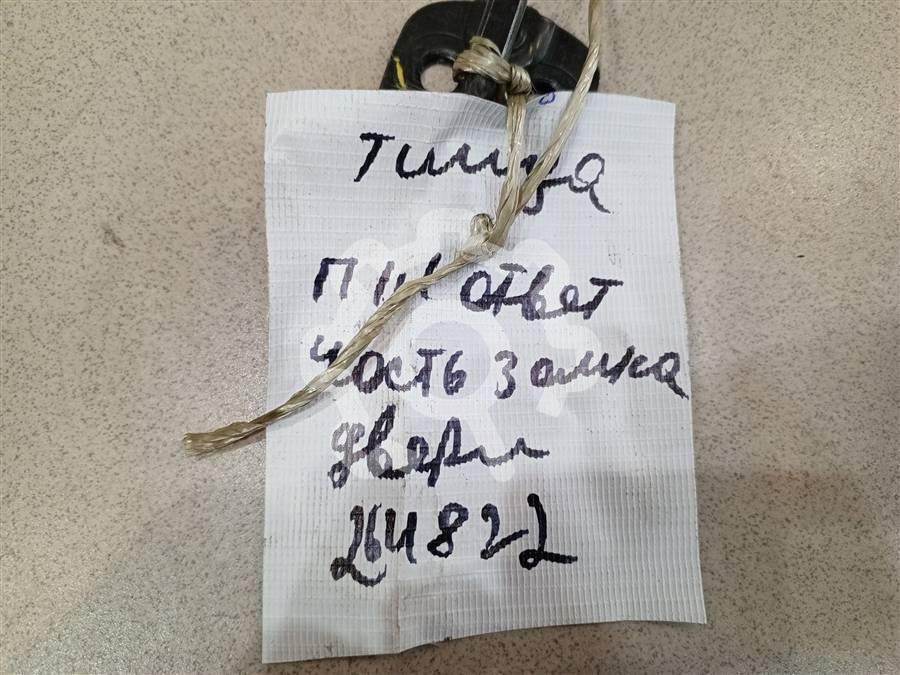 Тигуа
ответ
часть замка
двери
264822